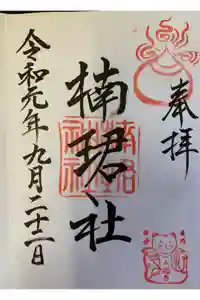 奉拝
楠珺社
令和元年九月二十二日